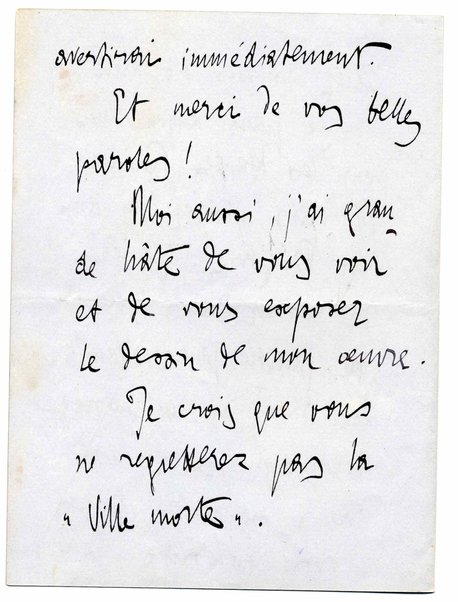 avertirai immédiatement.
Et merci de vos belles
paroles !
Moi aussi, j'ai gran-
de hâte de vous voir
et de vous exposer
le dessin de mon œuvre.
Je crois que vous
ne regretterez pas la
"Ville morte".